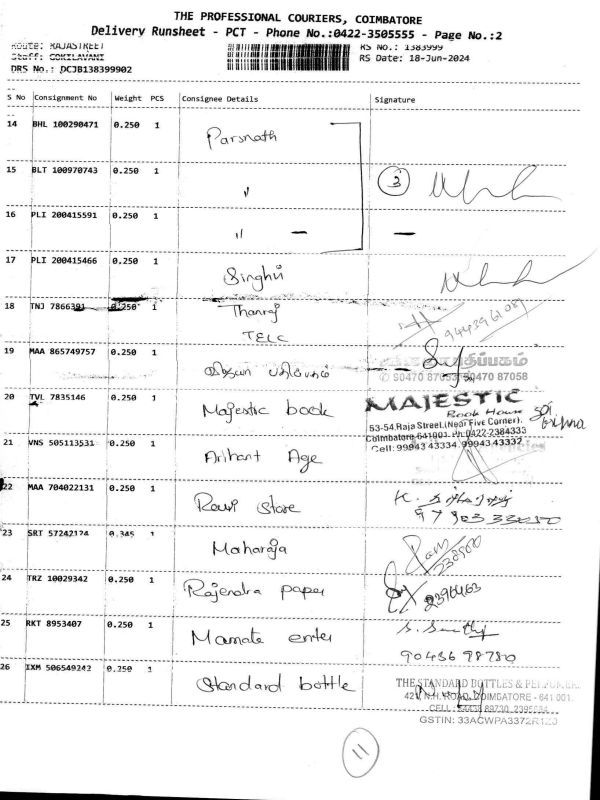 THE PROFESSIONAL COURIERS, COIMBATORE
Delivery Runsheet - PCT - Phone No.:0422-3505555 - Page No.:2
Route: RAJASTREET RS No.: 1383999
Staff: GOKILAVANI RS Date: 18-Jun-2024
DRS No.: DCJB138399902
S No Consignment No Weight PCS Consignee Details Signature
14 BHL 100290471 0.250 1 Parsnath
15 BLT 100970743 0.250 1 " 3
16 PLI 200415591 0.250 1 " — —
17 PLI 200415466 0.250 1 Singhvi
18 TNJ 7866391 0.250 1 Thanraj
TELC
19 MAA 865749757 0.250 1
20 TVL 7835146 0.250 1 Majestic book
MAJESTIC
Book House
53-54,Raja Street,(Near Five Corner),
Coimbatore-641001. Ph:0422-2384333
Cell: 99943 43334, 99943 43332
21 VNS 505113531 0.250 1 Arihant Age
22 MAA 704022131 0.250 1 Ravi Store
23 SRT 57242124 0.345 1 Maharaja
24 TRZ 10029342 0.250 1 Rajendra paper 2396463
25 RKT 8953407 0.250 1 Mamate enter
90436 98780
26 IXM 506549242 0.250 1 Standard bottle
THE STANDARD BOTTLES &
COIMBATORE - 641 001.
GSTIN: 33ACWPA3372R1Z0
11